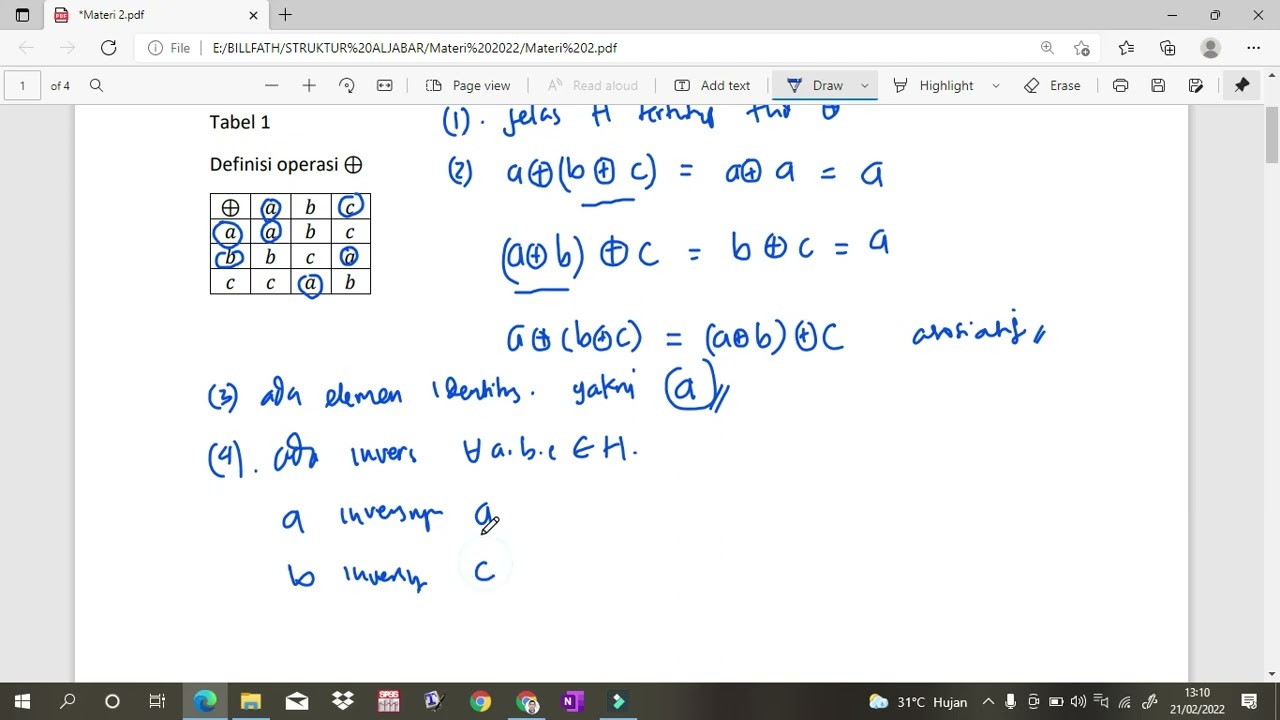 *Materi 2.pdf
File E:/BILLFATH/STRUKTUR%20ALJABAR/Materi%202022/Materi%202.pdf
1 of 4 Page view Read aloud Add text Draw Highlight Erase
Tabel 1
(1). Jelas H tertutup thd ⊕
Definisi operasi ⊕
⊕ a b c
a a b c
b b c a
c c a b
(2) a⊕(b⊕c) = a⊕a = a
(a⊕b)⊕c = b⊕c = a
a⊕(b⊕c) = (a⊕b)⊕c asosiatif //
(3) ada elemen identitas. yakni a //
(4). ada invers ∀a.b.c ∈ H.
a inversnya a
b inversnya c
31°C Hujan
13:10
21/02/2022